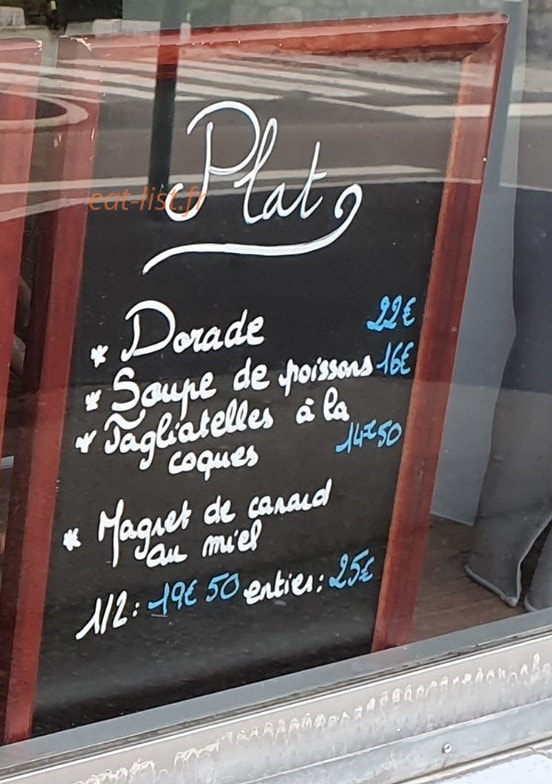 Plat
eat-list.fr
* Dorade 22€
* Soupe de poissons 16€
* Tagliatelles à la
coques 14€50
* Magret de canard
au miel
1/2: 19€50 entier: 25€